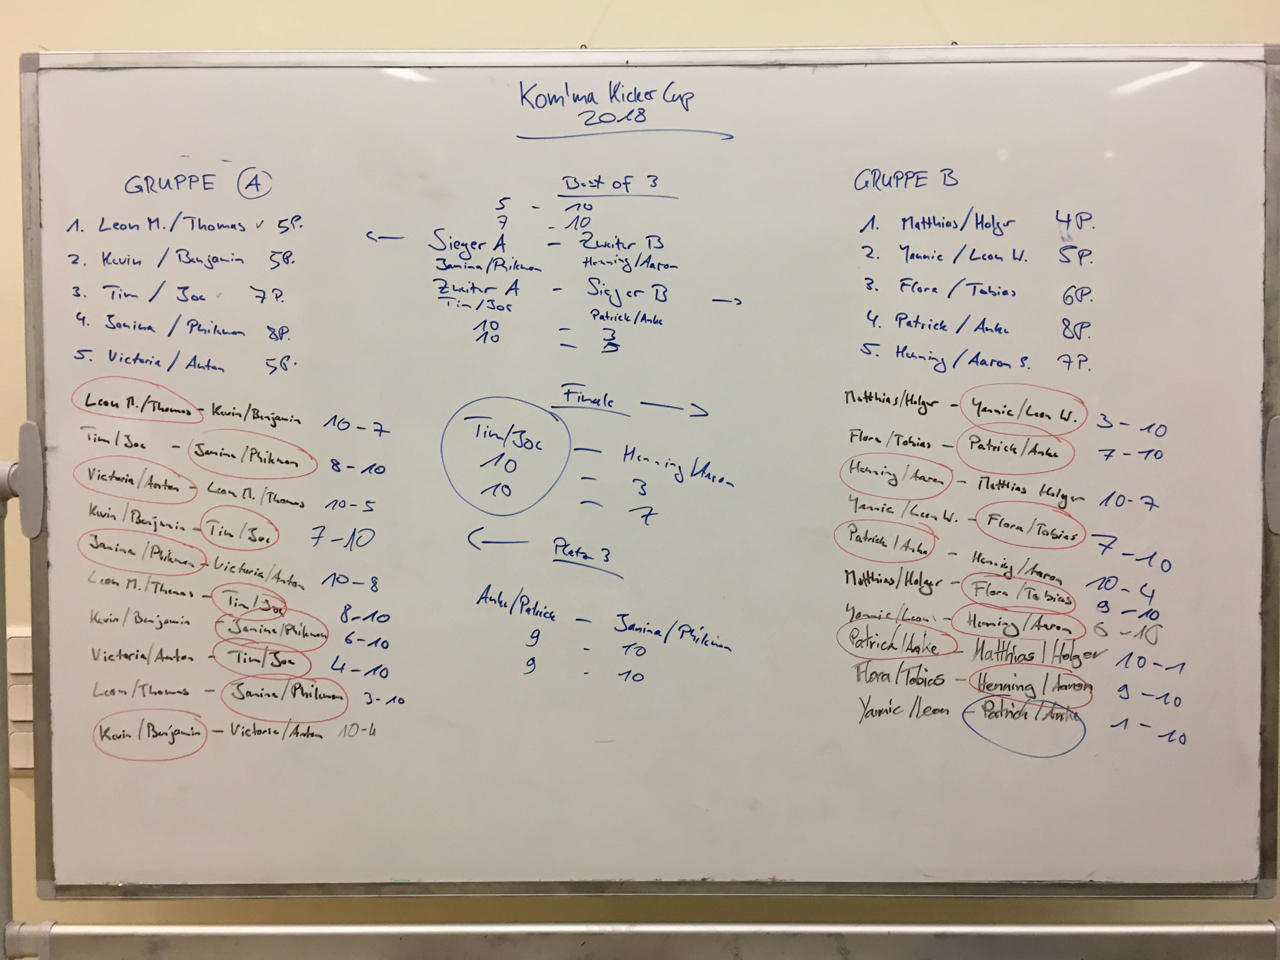 Kom'ma Kicker Cup
2018
GRUPPE A
1. Leon M./Thomas 5P.
2. Kevin / Benjamin 5P.
3. Tim / Joe 7P.
4. Janina / Philemon 8P.
5. Victoria/Anton 5P.
Leon M./Thomas - Kevin/Benjamin 10-7
Tim/Joe - Janina/Philemon 8-10
Victoria/Anton - Leon M./Thomas 10-5
Kevin/Benjamin - Tim/Joe 7-10
Janina/Philemon - Victoria/Anton 10-8
Leon M./Thomas - Tim/Joe 8-10
Kevin/Benjamin - Janina/Philemon 6-10
Victoria/Anton - Tim/Joe 4-10
Leon/Thomas - Janina/Philemon 3-10
Kevin/Benjamin - Victoria/Anton 10-4
Best of 3
5 - 10
7 - 10
Sieger A - Zweiter B
Janina/Philemon Henning/Aaron
Zweiter A - Sieger B
Tim/Joe Patrick/Anke
10 = 3
10 - 5
Finale
Tim/Joe - Henning/Aaron
10 - 3
10 - 7
Platz 3
Anke/Patrick - Janina/Philemon
9 - 10
9 - 10
GRUPPE B
1. Matthias/Holger 4P.
2. Yannic/Leon W. 5P.
3. Flora/Tobias 6P.
4. Patrick/Anke 8P.
5. Henning/Aaron S. 7P.
Matthias/Holger - Yannic/Leon W. 3-10
Flora/Tobias - Patrick/Anke 7-10
Henning/Aaron - Matthias Holger 10-7
Yannic/Leon W. - Flora/Tobias 7-10
Patrick/Anke - Henning/Aaron 10-4
Matthias/Holger - Flora/Tobias 9-10
Yannic/Leon - Henning/Aaron 6-10
Patrick/Anke - Matthias/Holger 10-1
Flora/Tobias - Henning/Aaron 9-10
Yannic/Leon - Patrick/Anke 1-10